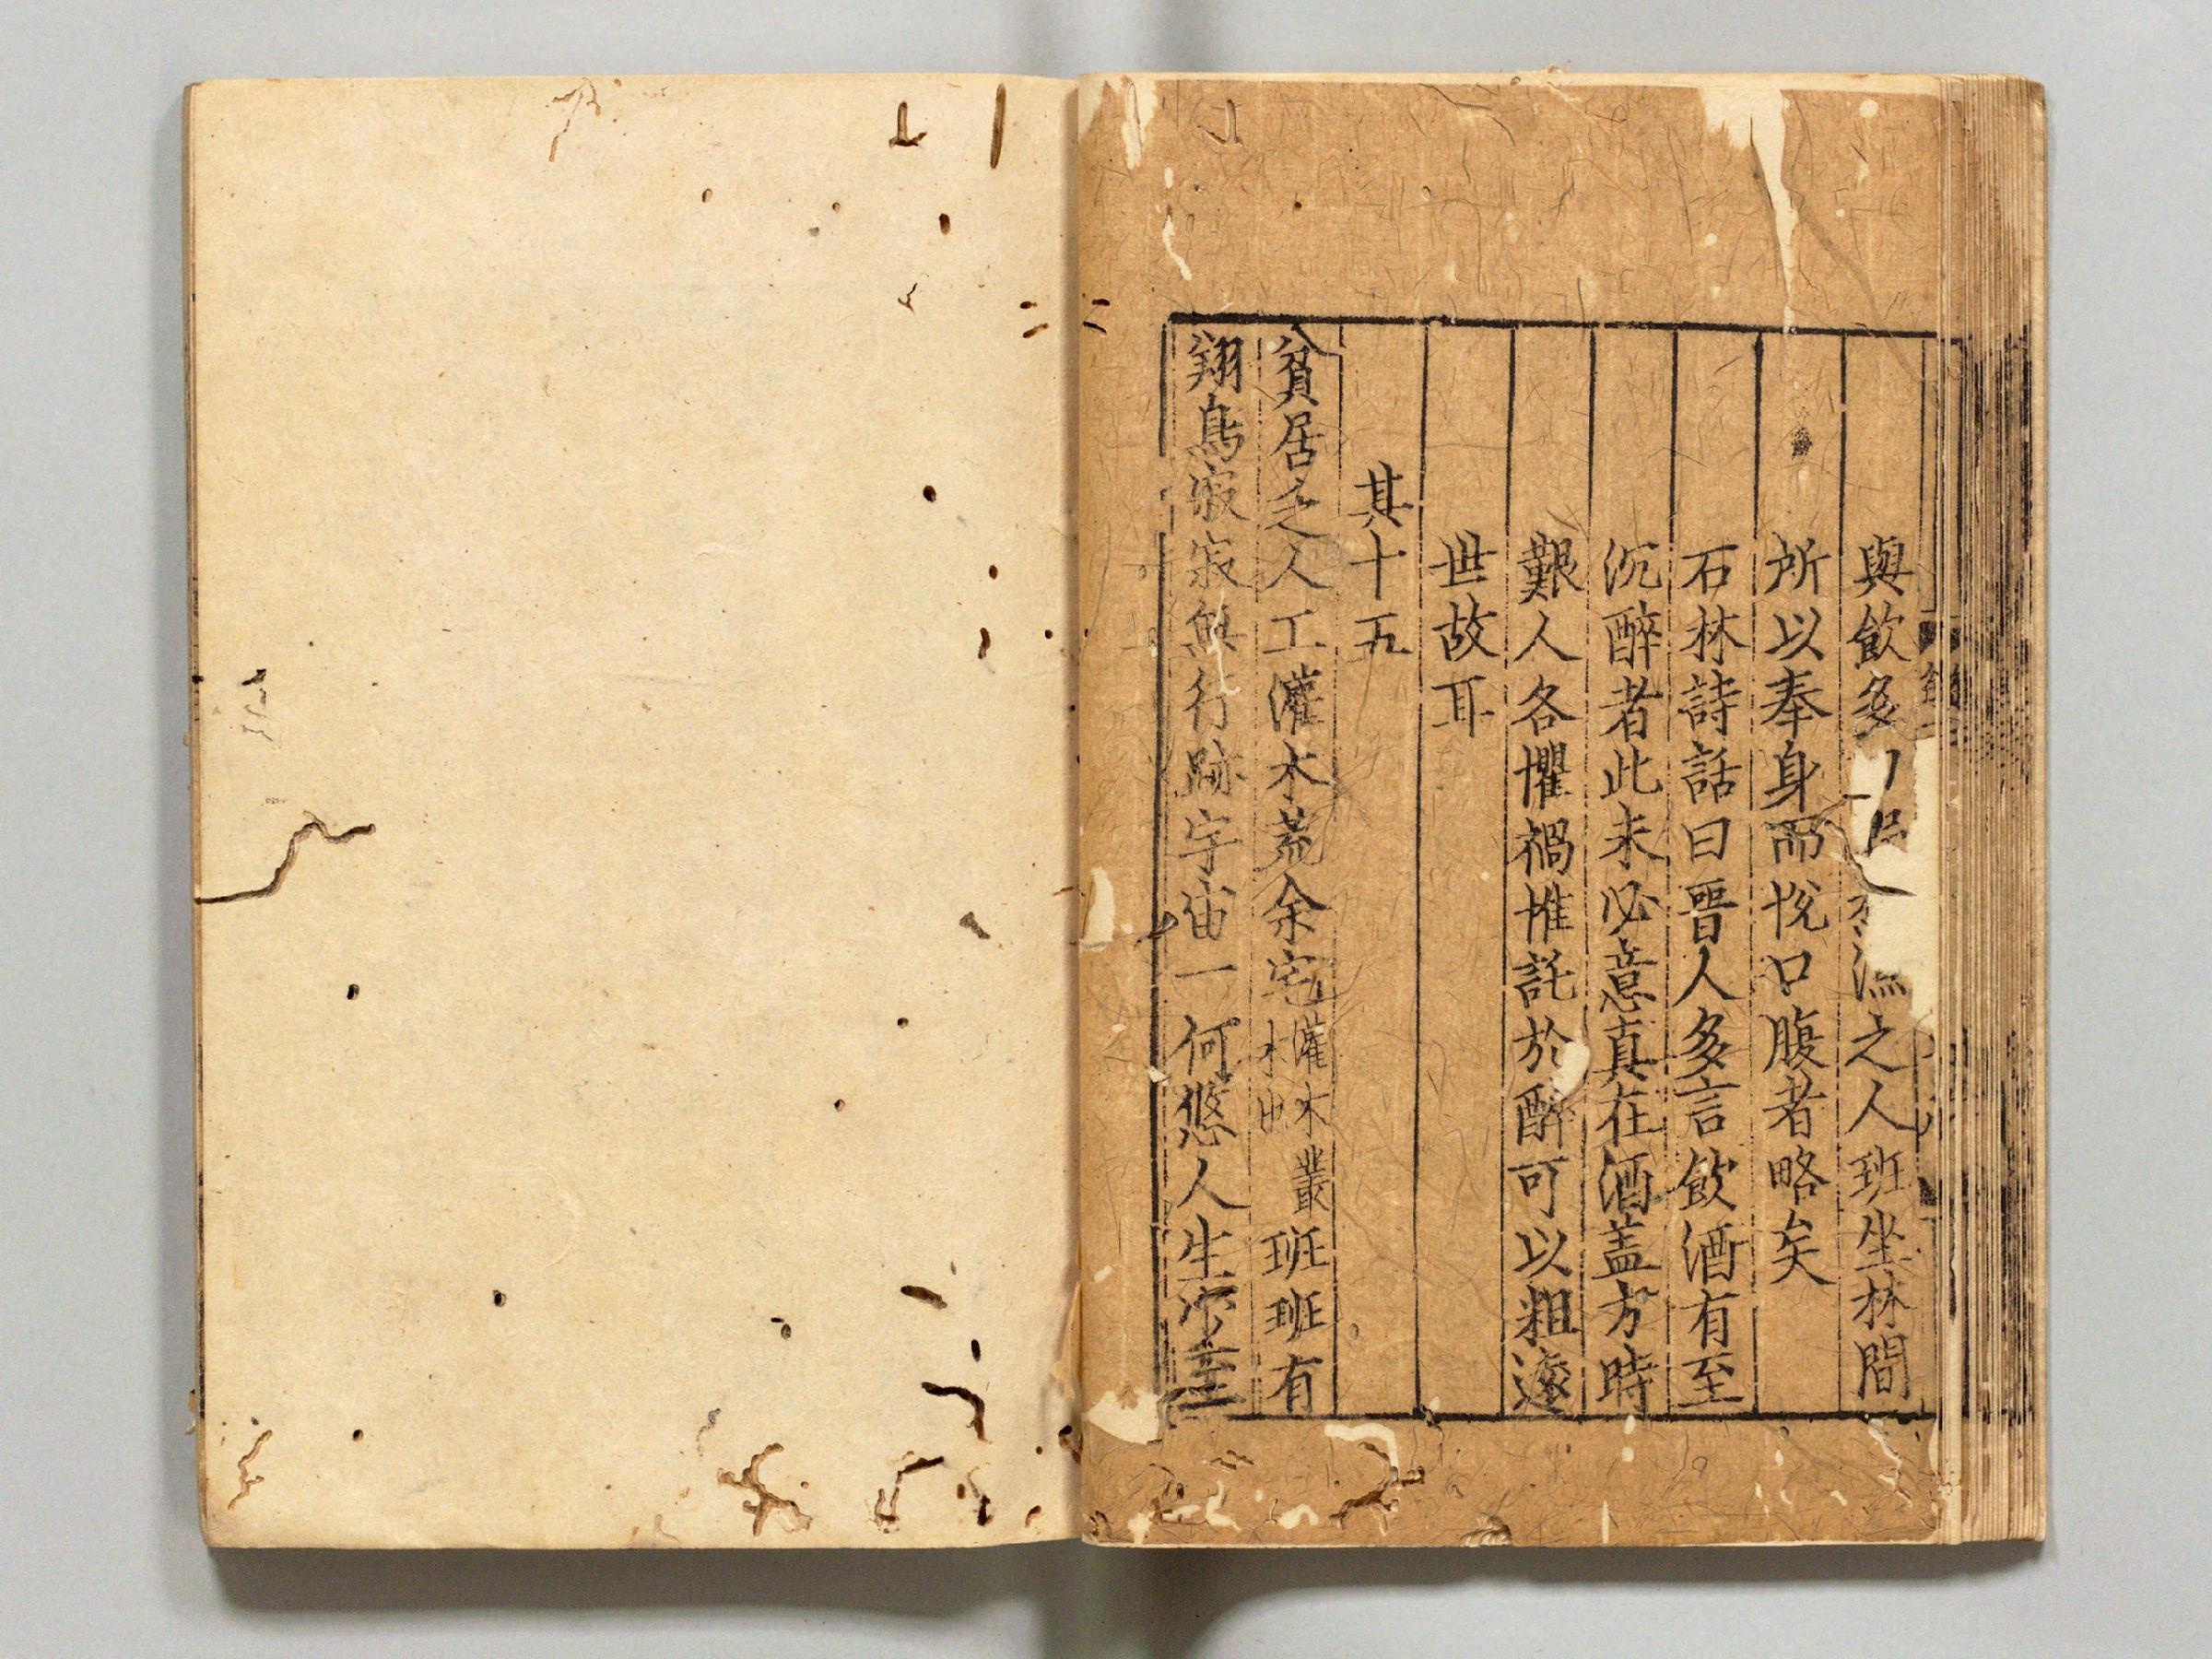 與飲多之人班坐林間
所以奉身而悅口腹者略矣
石林詩話曰晉人多言飲酒有至
沉醉者此未必意真在酒盖方時
艱人各懼禍惟託於醉可以粗遠
世故耳
其十五
貧居乏人工灌木荒余宅灌木叢木也班班有
翔鳥寂寂無行跡宇宙一何悠人生少至